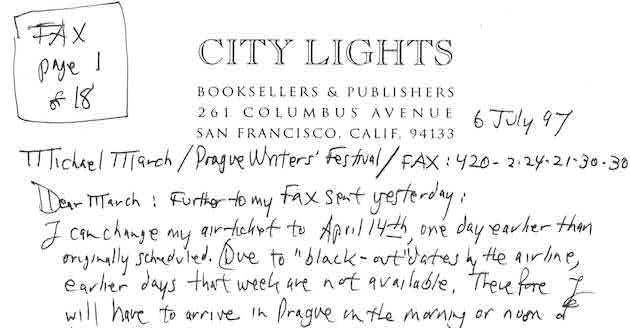 FAX
page 1
of 18
CITY LIGHTS
BOOKSELLERS & PUBLISHERS
261 COLUMBUS AVENUE
SAN FRANCISCO, CALIF. 94133
6 July 97
Michael March / Prague Writers' Festival / FAX: 420-2-24-21-30-30
Dear March: Further to my fax sent yesterday:
I can change my air-ticket to April 14th, one day earlier than
originally scheduled. Due to "black-out" dates by the airline,
earlier days that week are not available. Therefore I
will have to arrive in Prague in the morning or noon